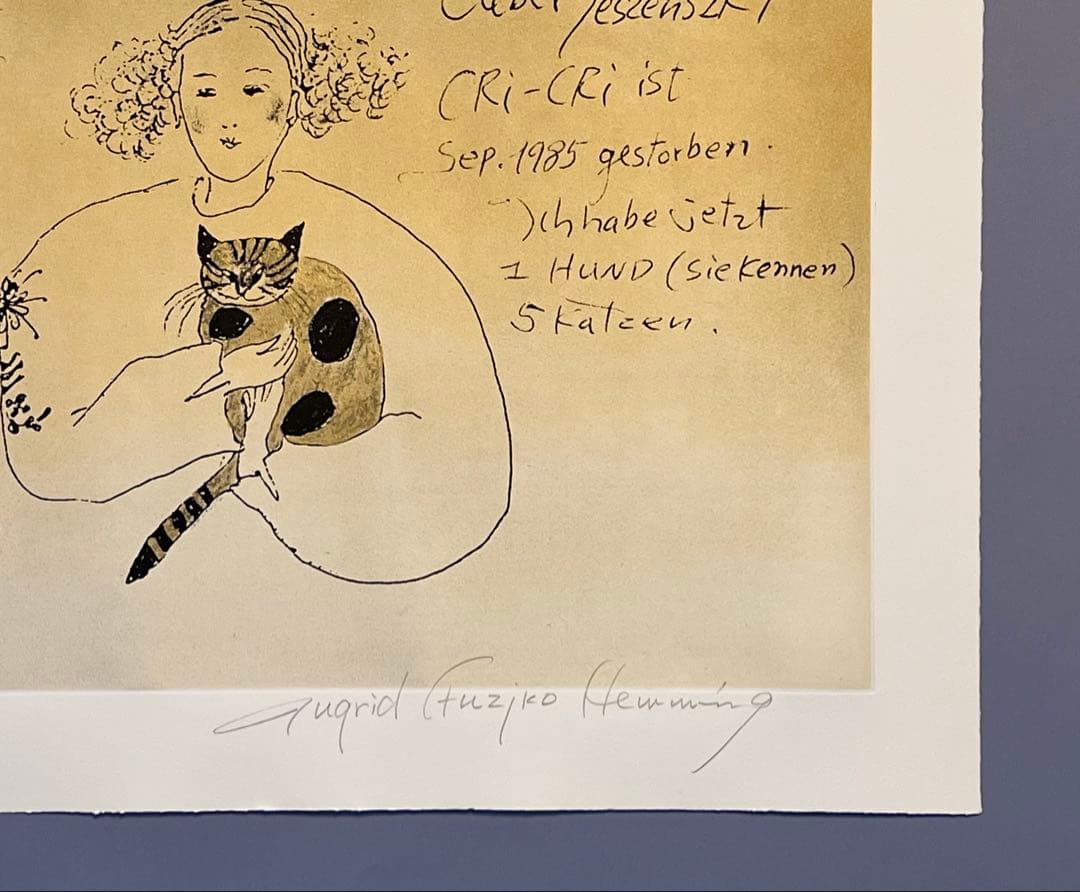 Jeszenszky
CRi-CRi ist
Sep. 1985 gestorben.
Ich habe jetzt
1 HUND (sie kennen)
5 Katzen.
Ingrid Fuzjko Hemming